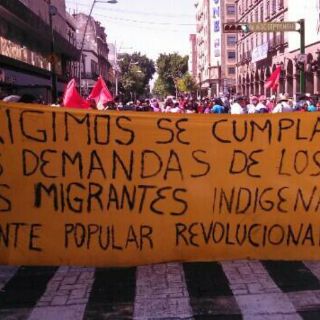 XIGIMOS SE CUMPLA
S DEMANDAS DE LOS
S MIGRANTES INDIGENA
ENTE POPULAR REVOLUCIONA